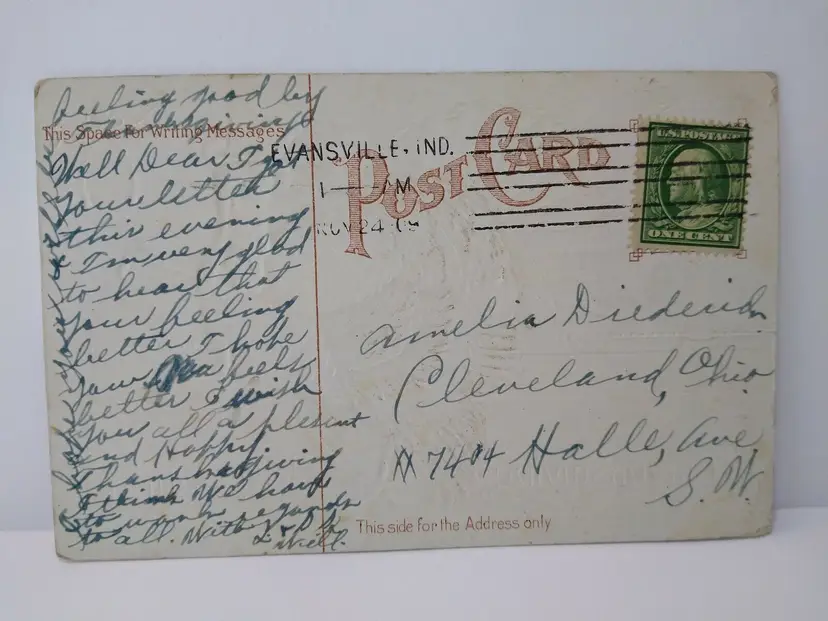 feeling good by
Thanksgiving
This Space For Writing Messages
Well Dear I got
your letter
this evening
& I'm very glad
to hear that
your feeling
better I hope
your Ma feels
better I wish
you all a plesent
and Happy
Thanksgiving
I think We have
to work
regards
to all. With
Will.
POST CARD
EVANSVILLE, IND.
1 — AM
NOV 24 09
U.S. POSTAGE
ONE CENT
Amelia Diederich
Cleveland, Ohio
7404 Halle, Ave
S. W.
This side for the Address only